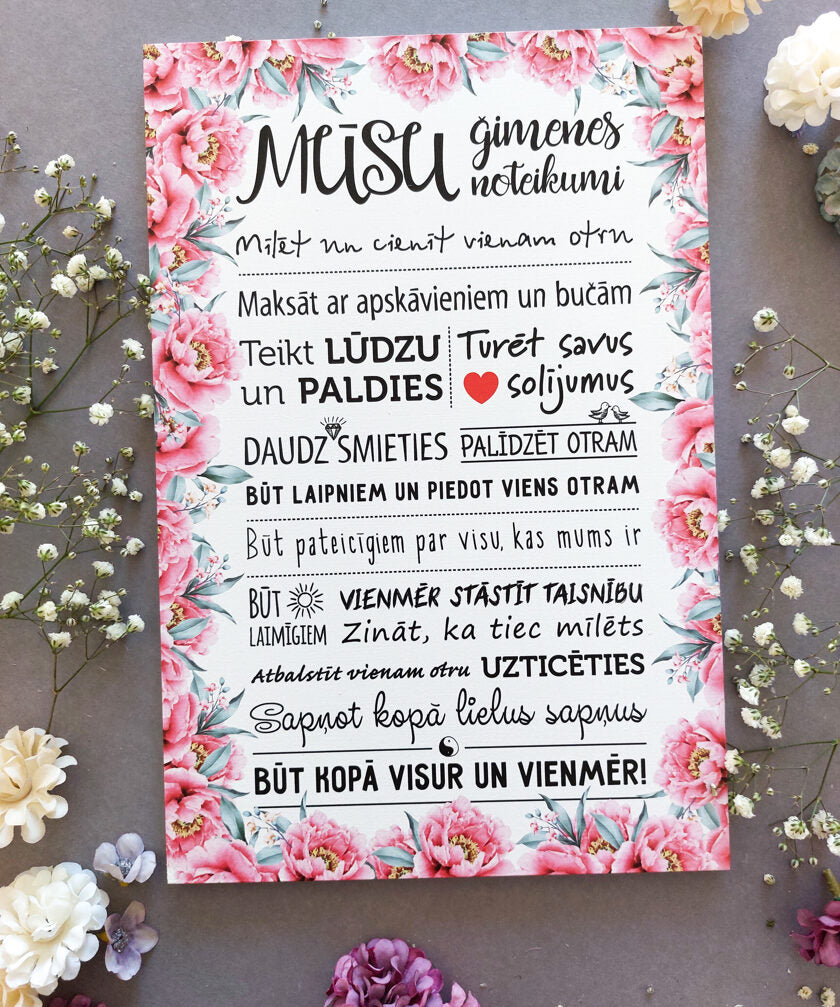 Mūsu ģimenes noteikumi
Mīlēt un cienīt vienam otru
Maksāt ar apskāvieniem un bučām
Teikt LŪDZU
un PALDIES
Turēt savus
solījumus
DAUDZ SMIETIES
PALĪDZĒT OTRAM
BŪT LAIPNIEM UN PIEDOT VIENS OTRAM
Būt pateicīgiem par visu, kas mums ir
BŪT
LAIMĪGIEM
VIENMĒR STĀSTĪT TAISNĪBU
Zināt, ka tiec mīlēts
Atbalstīt vienam otru UZTICĒTIES
Sapņot kopā lielus sapņus
BŪT KOPĀ VISUR UN VIENMĒR!